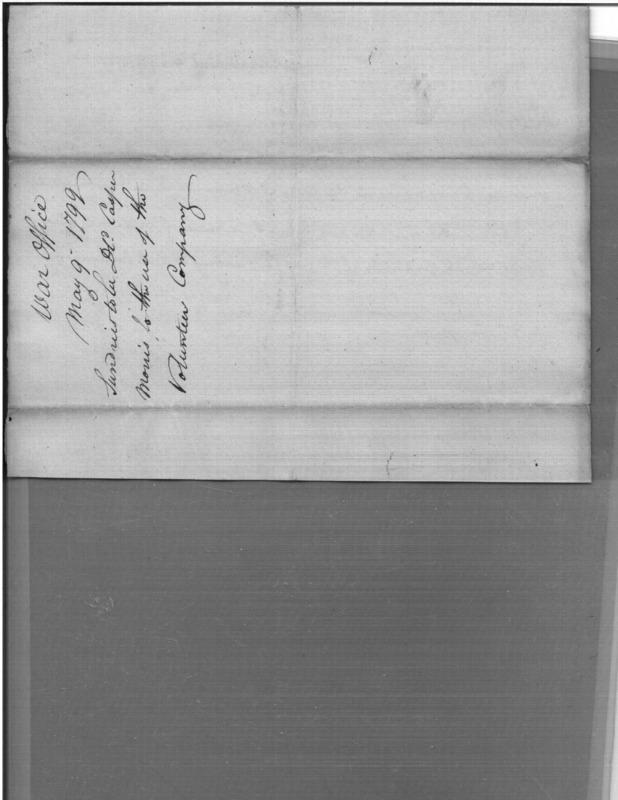 War Office
May 9th 1799
Sundries to be Dd. Casper
Morris for the use of the
Volunteer Company